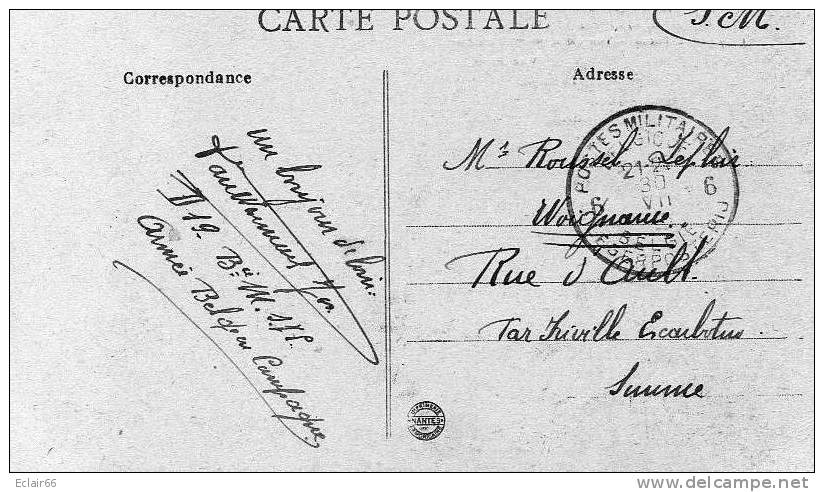 CARTE POSTALE
S.M.
Correspondance
Adresse
un bonjour de loin
D 19 - Bie M. S.P.
Armée Belge en Campagne
Mr Roussel Leploir
Woignarue
Rue d'Ault
Par Friville Escarbotin
Somme
POSTES MILITAIRES
BELGIQUE
21-2
30
VII
6 6
BELGIE
LEGERPOSTERIJ
IMPRIMERIE
NANTES
Eclair66
www.delcampe.net